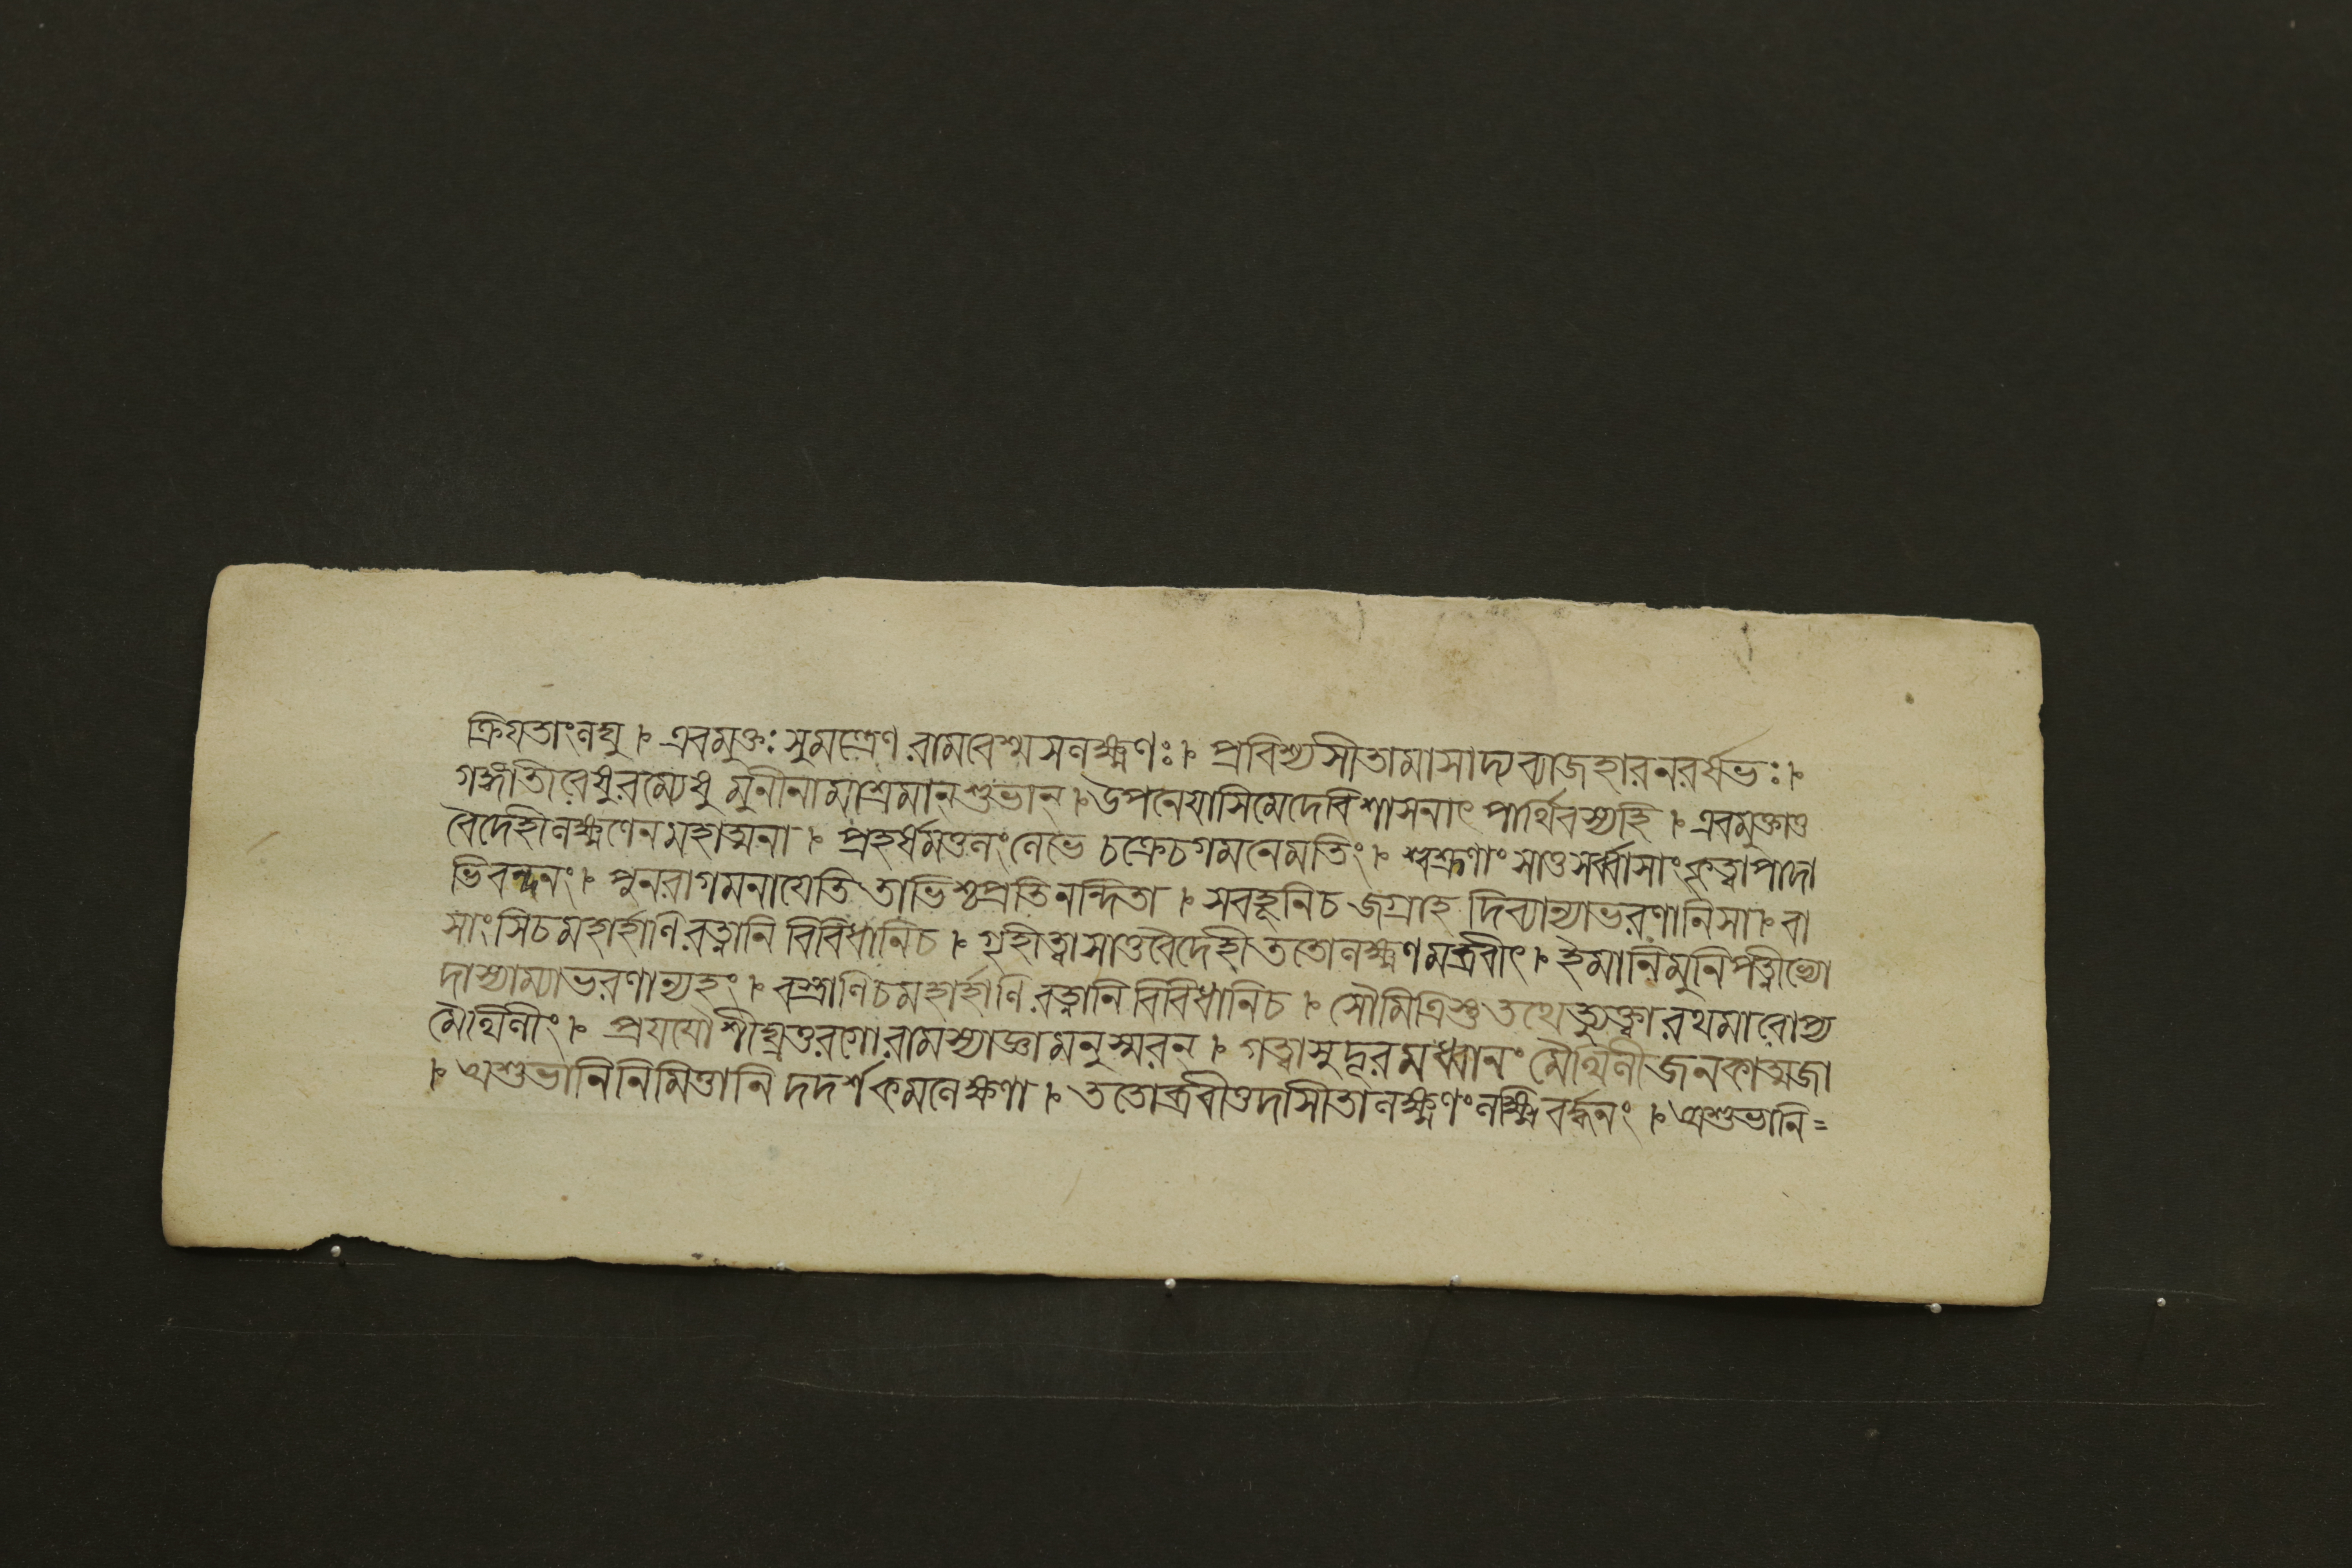 ক্রিযতাংলঘু । এবমুক্তঃ সুমন্ত্রেণ রামবেশ্ম সলক্ষ্মণঃ । প্রবিশ্যসীতামাসাদ্য ব্যাজহারনরর্ষভঃ ।
গঙ্গাতীরেষুরম্যেষু মুনীনামাশ্রমান্ শুভান্ । উপনেযাসিমেদেবিশাসনাৎ পার্থিবস্যহি । এবমুক্তাতু
বৈদেহীলক্ষ্মণেনমহাত্মনা । প্রহর্ষমতুলংলেভে চক্রেচগমনেমতিং । শ্বশ্রূণাং সাতুসর্ব্বাসাং কৃত্বাপাদা
ভিবন্দনং । পুনরাগমনাযেতি তাভিশ্চপ্রতিনন্দিতা । সবহূনিচ জগ্রাহ দিব্যান্যাভরণানিসা । বা
সাংসিচমহার্হাণি রত্নানি বিবিধানিচ । গৃহীত্বাসাতুবৈদেহী ততোলক্ষ্মণমব্রবীৎ । ইমানিমুনিপত্নীভ্যো
দাস্যাম্যাভরণান্যহং । বস্ত্রাণিচমহার্হাণি রত্নানি বিবিধানিচ । সৌমিত্রিস্তুতথেত্যুক্ত্বারথমারোপ্য
মৈথিলীং । প্রযযৌশীঘ্রতুরগোরামস্যাজ্ঞামনুস্মরন্ । গত্বাসুদূরমধ্বানং মৈথিলীজনকাত্মজা
। অশুভানিনিমিত্তানি দদর্শকমলেক্ষণা । ততোব্রবীত্তদাসীতালক্ষ্মণংলক্ষ্মিবর্দ্ধনং । অশুভানি=